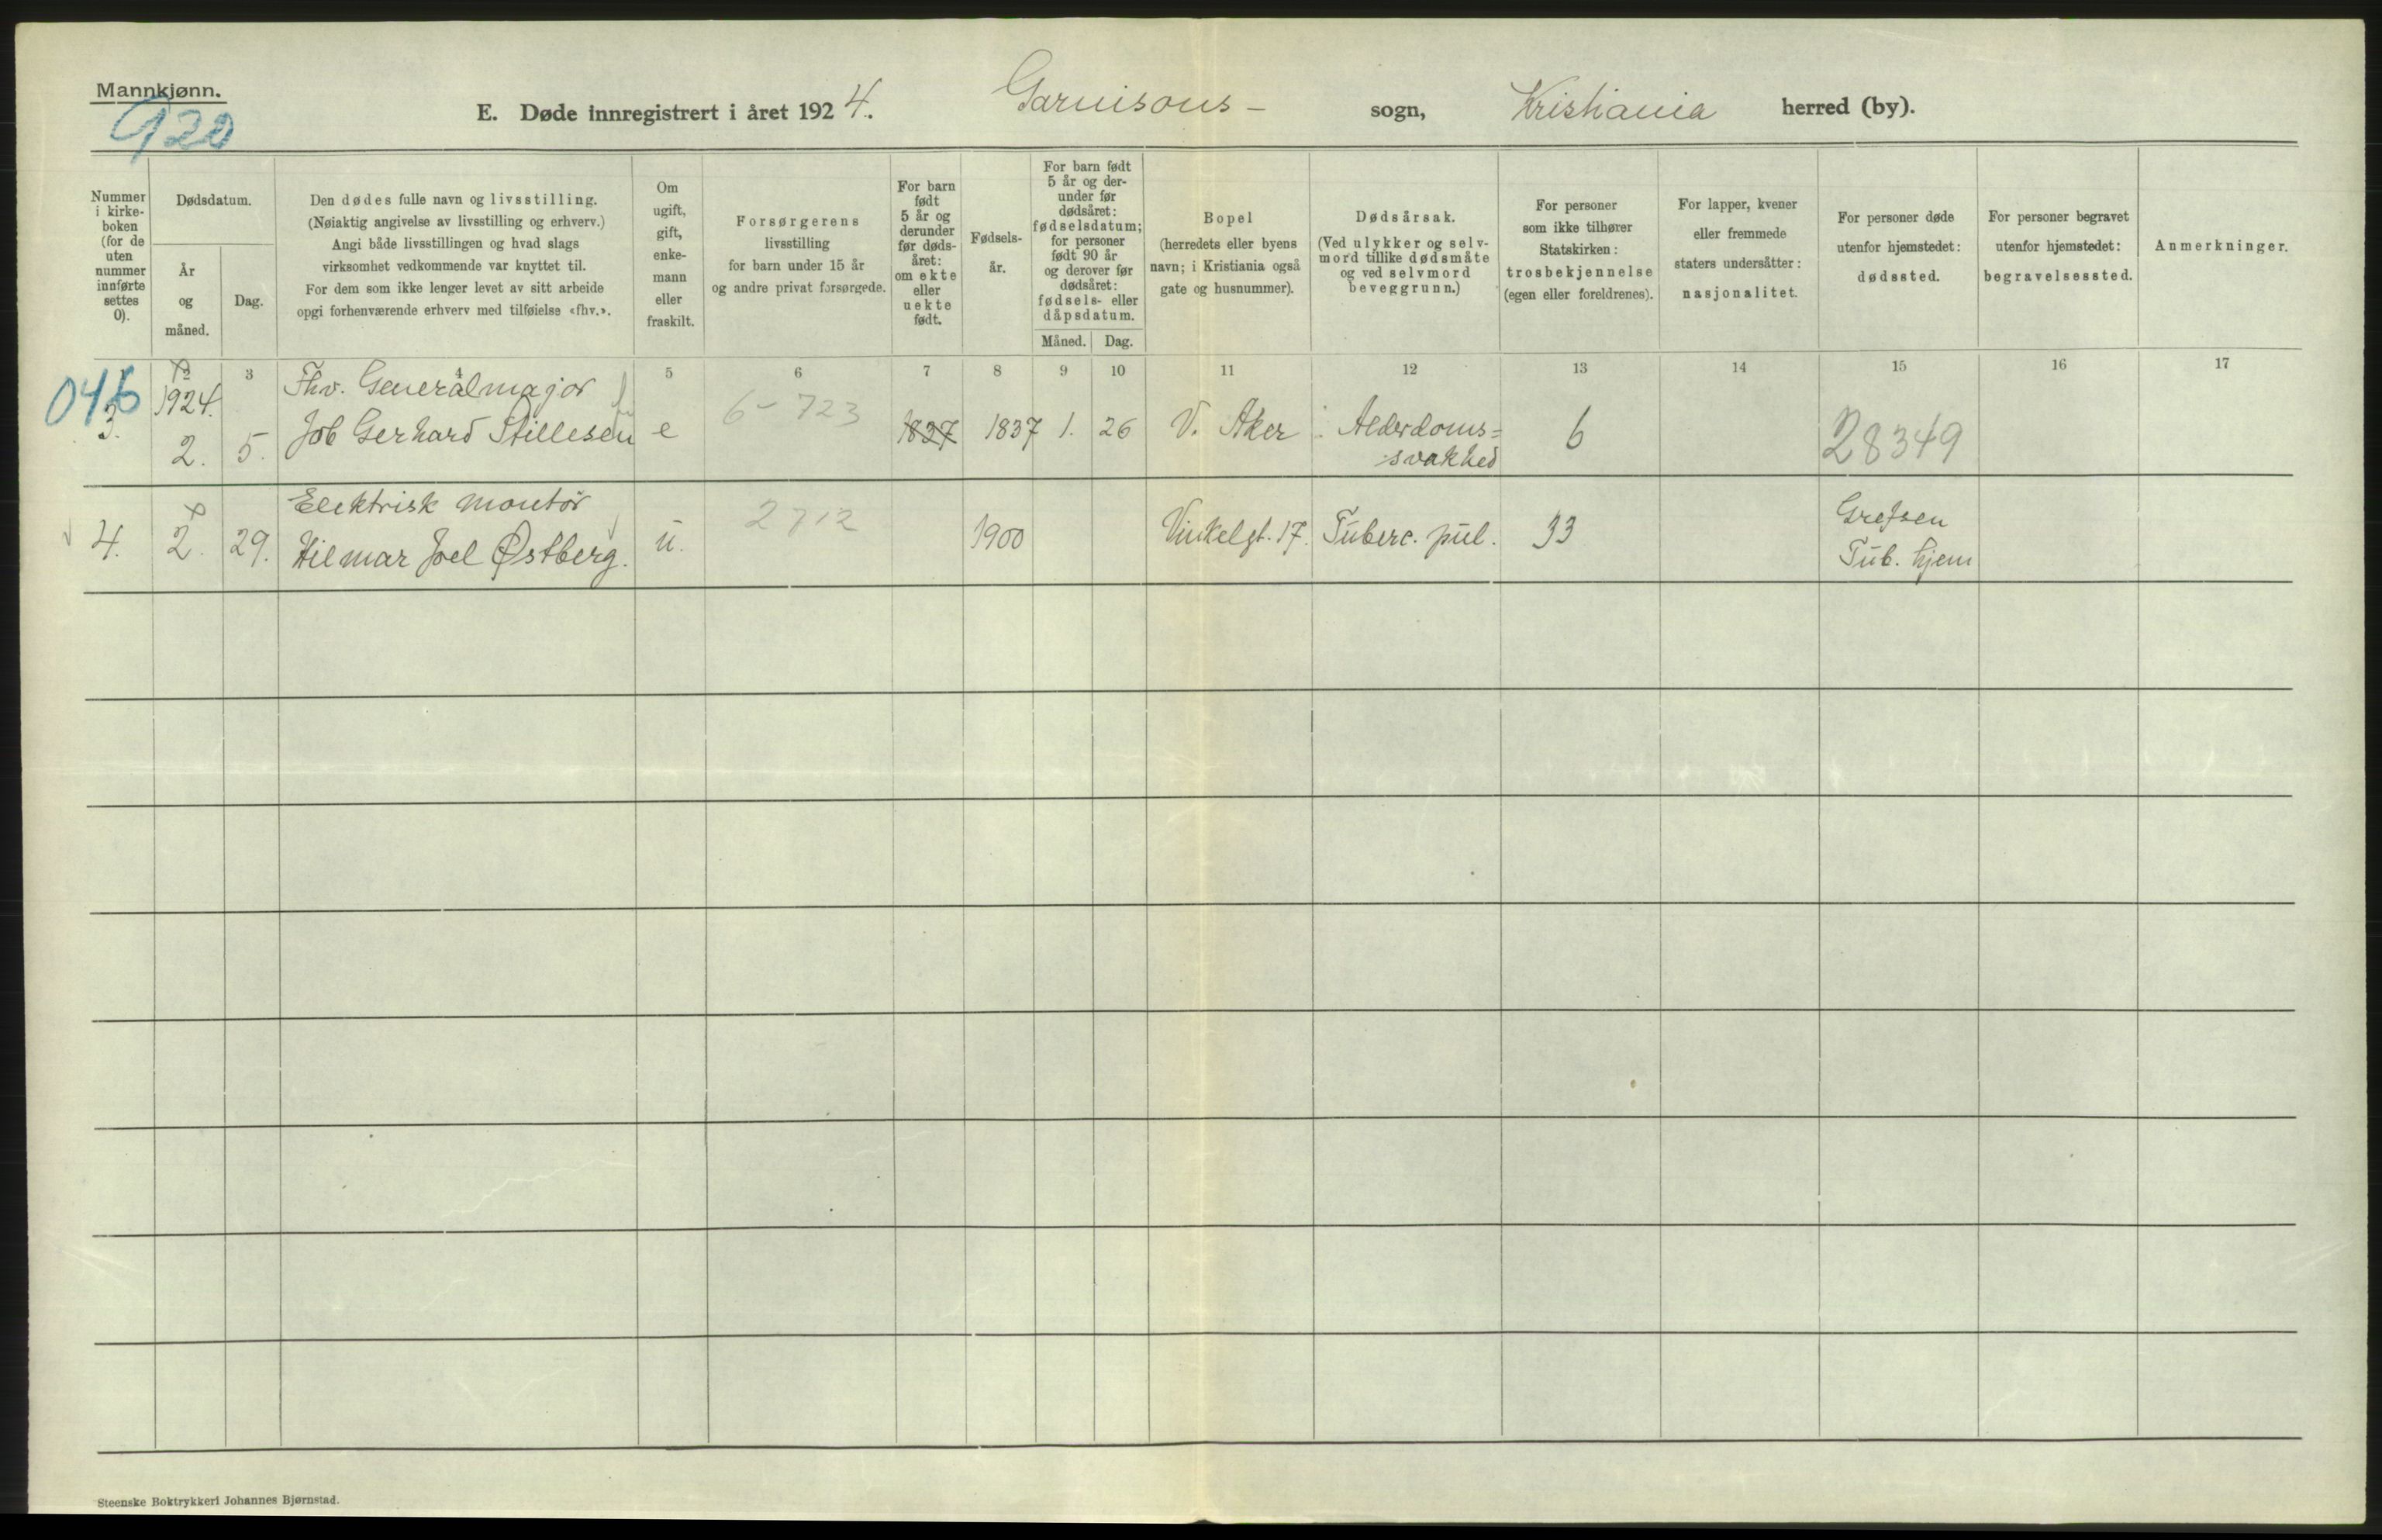 Mannkjønn.
920
E. Døde innregistrert i året 1924. Garnisons- sogn, Kristiania herred (by).
Nummer i kirke-boken (for de uten nummer innførte settes 0).
Dødsdatum.
År og måned.
Dag.
Den dødes fulle navn og livsstilling.
(Nøiaktig angivelse av livsstilling og erhverv.)
Angi både livsstillingen og hvad slags
virksomhet vedkommende var knyttet til.
For dem som ikke lenger levet av sitt arbeide
opgi forhenværende erhverv med tilføielse «fhv.».
Om ugift, gift, enke-mann eller fraskilt.
Forsørgerens
livsstilling
for barn under 15 år
og andre privat forsørgede.
For barn født 5 år og derunder før døds-året: om ekte eller uekte født.
Fødsels-år.
For barn født 5 år og der-under før dødsåret: fødselsdatum; for personer født 90 år og derover før dødsåret: fødsels- eller dåpsdatum.
Måned. Dag.
Bopel
(herredets eller byens
navn; i Kristiania også
gate og husnummer).
Dødsårsak.
(Ved ulykker og selv-
mord tillike dødsmåte
og ved selvmord
beveggrunn.)
For personer
som ikke tilhører
Statskirken:
trosbekjennelse
(egen eller foreldrenes).
For lapper, kvener
eller fremmede
staters undersåtter:
nasjonalitet.
For personer døde
utenfor hjemstedet:
dødssted.
For personer begravet
utenfor hjemstedet:
begravelsessted.
Anmerkninger.
2 3 4 5 6 7 8 9 10 11 12 13 14 15 16 17
1924. Fhv. Generalmajor
3. 2. 5. Job Gerhard Stillesen e 6-723 1837 1837 1. 26 V. Aker Alderdoms=
svakhed 6 28349
Elektrisk montør
4. 2. 29. Hilmar Joel Østberg. u. 2712 1900 Vinkelgt. 17. Tuberc. pul. 33 Grefsen
Tub. hjem
Steenske Boktrykkeri Johannes Bjørnstad.